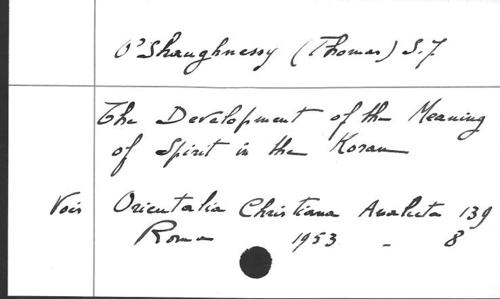 O'Shaughnessy (Thomas) S.J
The Development of the Meaning
of Spirit in the Koran
Vois Orientalia Christiana Analecta 139
Roma 1953 - 8